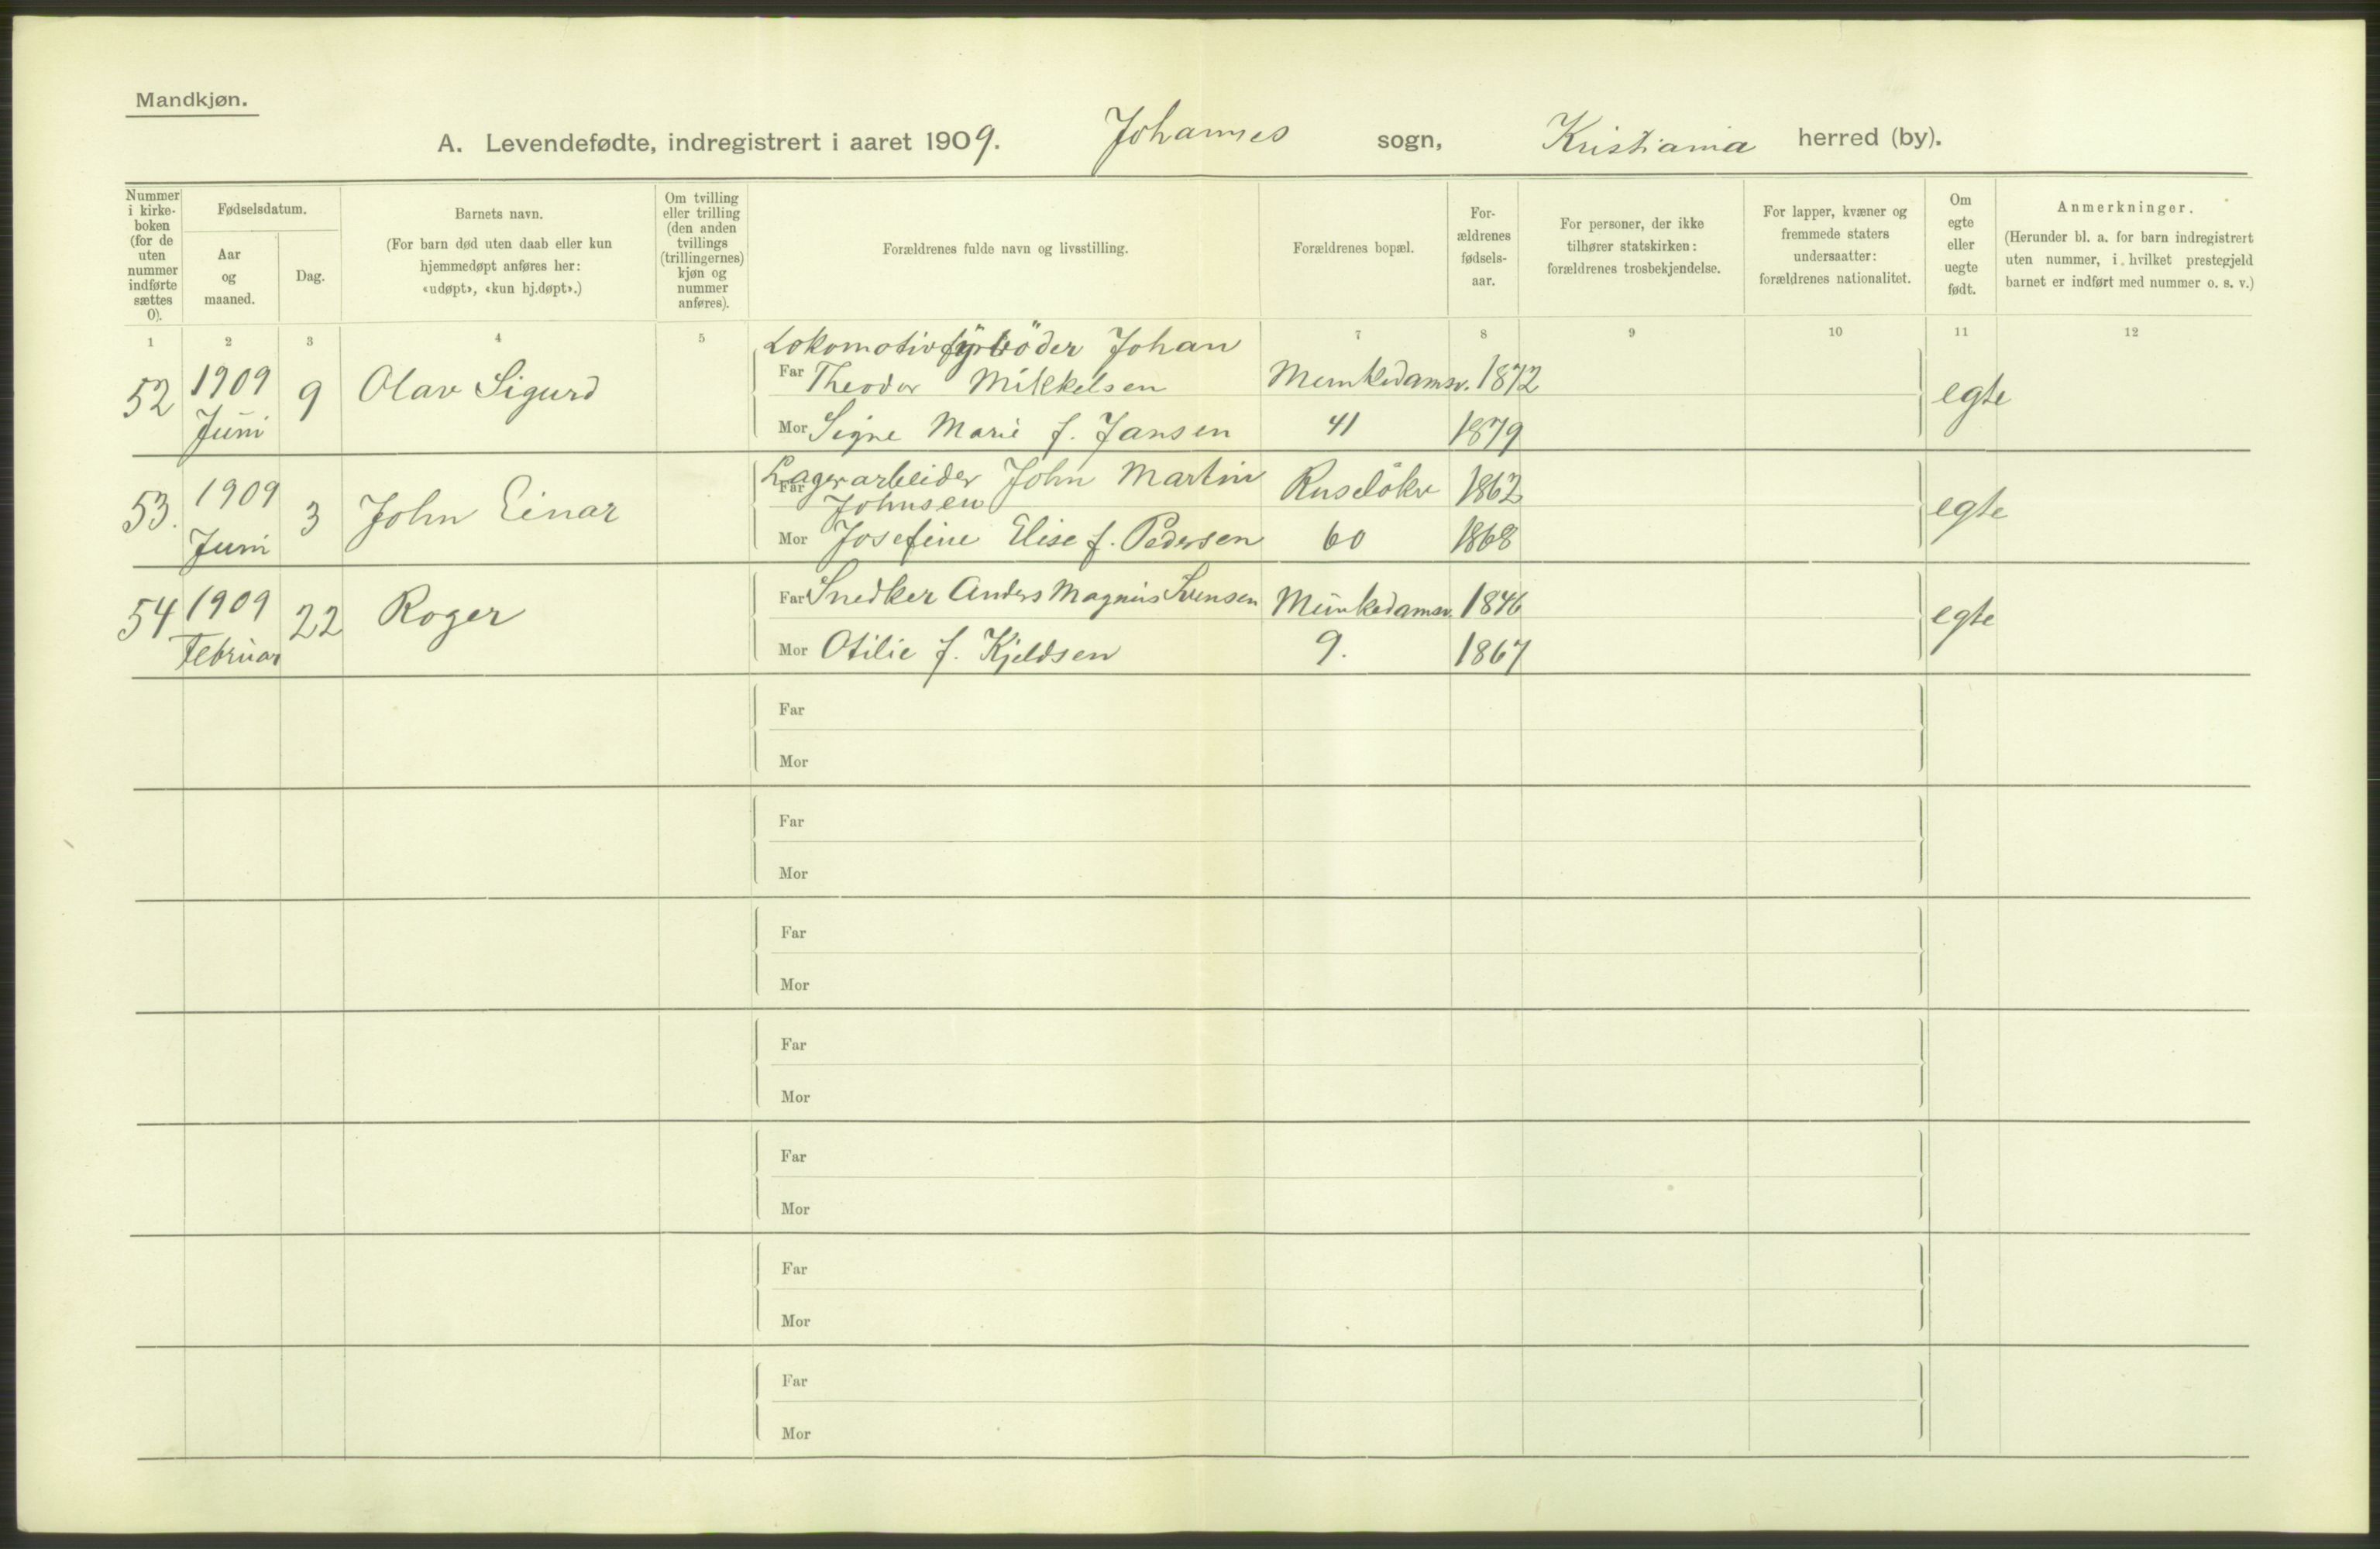 Mandkjøn.
A. Levendefødte, indregistrert i aaret 1909. Johannes sogn, Kristiania herred (by).
Nummer i kirke-boken (for de uten nummer indførte sættes 0).
Fødselsdatum.
Aar og maaned.
Dag.
Barnets navn.
(For barn død uten daab eller kun hjemmedøpt anføres her: «udøpt», «kun hj.døpt».)
Om tvilling eller trilling (den anden tvillings (trillingernes) kjøn og nummer anføres).
Forældrenes fulde navn og livsstilling.
Forældrenes bopæl.
For-ældrenes fødsels-aar.
For personer, der ikke tilhører statskirken: forældrenes trosbekjendelse.
For lapper, kvæner og fremmede staters undersaatter: forældrenes nationalitet.
Om egte eller uegte født.
Anmerkninger.
(Herunder bl. a. for barn indregistrert uten nummer, i hvilket prestegjeld barnet er indført med nummer o. s. v.)
1 2 3 4 5 7 8 9 10 11 12
52 1909 Juni 9 Olav Sigurd
Lokomotivfyrböder Johan
Far Theodor Mikkelsen Munkedamsv. 1872 egte
Mor Signe Marie f. Jansen 41 1879
53. 1909 Juni 3 John Einar
Lagerarbeider John Martin Ruselökv 1862 egte
Far Johnsen
Mor Josefine Elise f. Pedersen 60 1868
54 1909 Februar 22 Roger
Far Snedker Anders Magnus Svensen Munkedamsv. 1846 egte
Mor Otilie f. Kjeldsen 9. 1867
Far
Mor
Far
Mor
Far
Mor
Far
Mor
Far
Mor
Far
Mor
Far
Mor